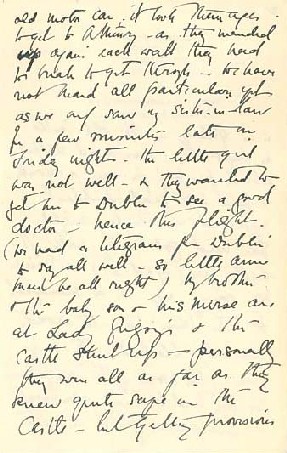 old motor car. it took them ages
to get to Athenry - as they mended
up again each wall they had
to break to get through - we have
not heard all particulars yet
as we only saw my sister-in-law
for a few minutes late on
Friday night. The little girl
was not well - & they wanted to
get her to Dublin to see a good
doctor - hence this flight.
(we had a telegram from Dublin
to say all well - so little
must be all right) My brother
& the baby son & his nurse are
at Lady Gregory's & the
Castle shut up - personally
they were all as far as they
knew quite safe in the
Castle - but getting provisions